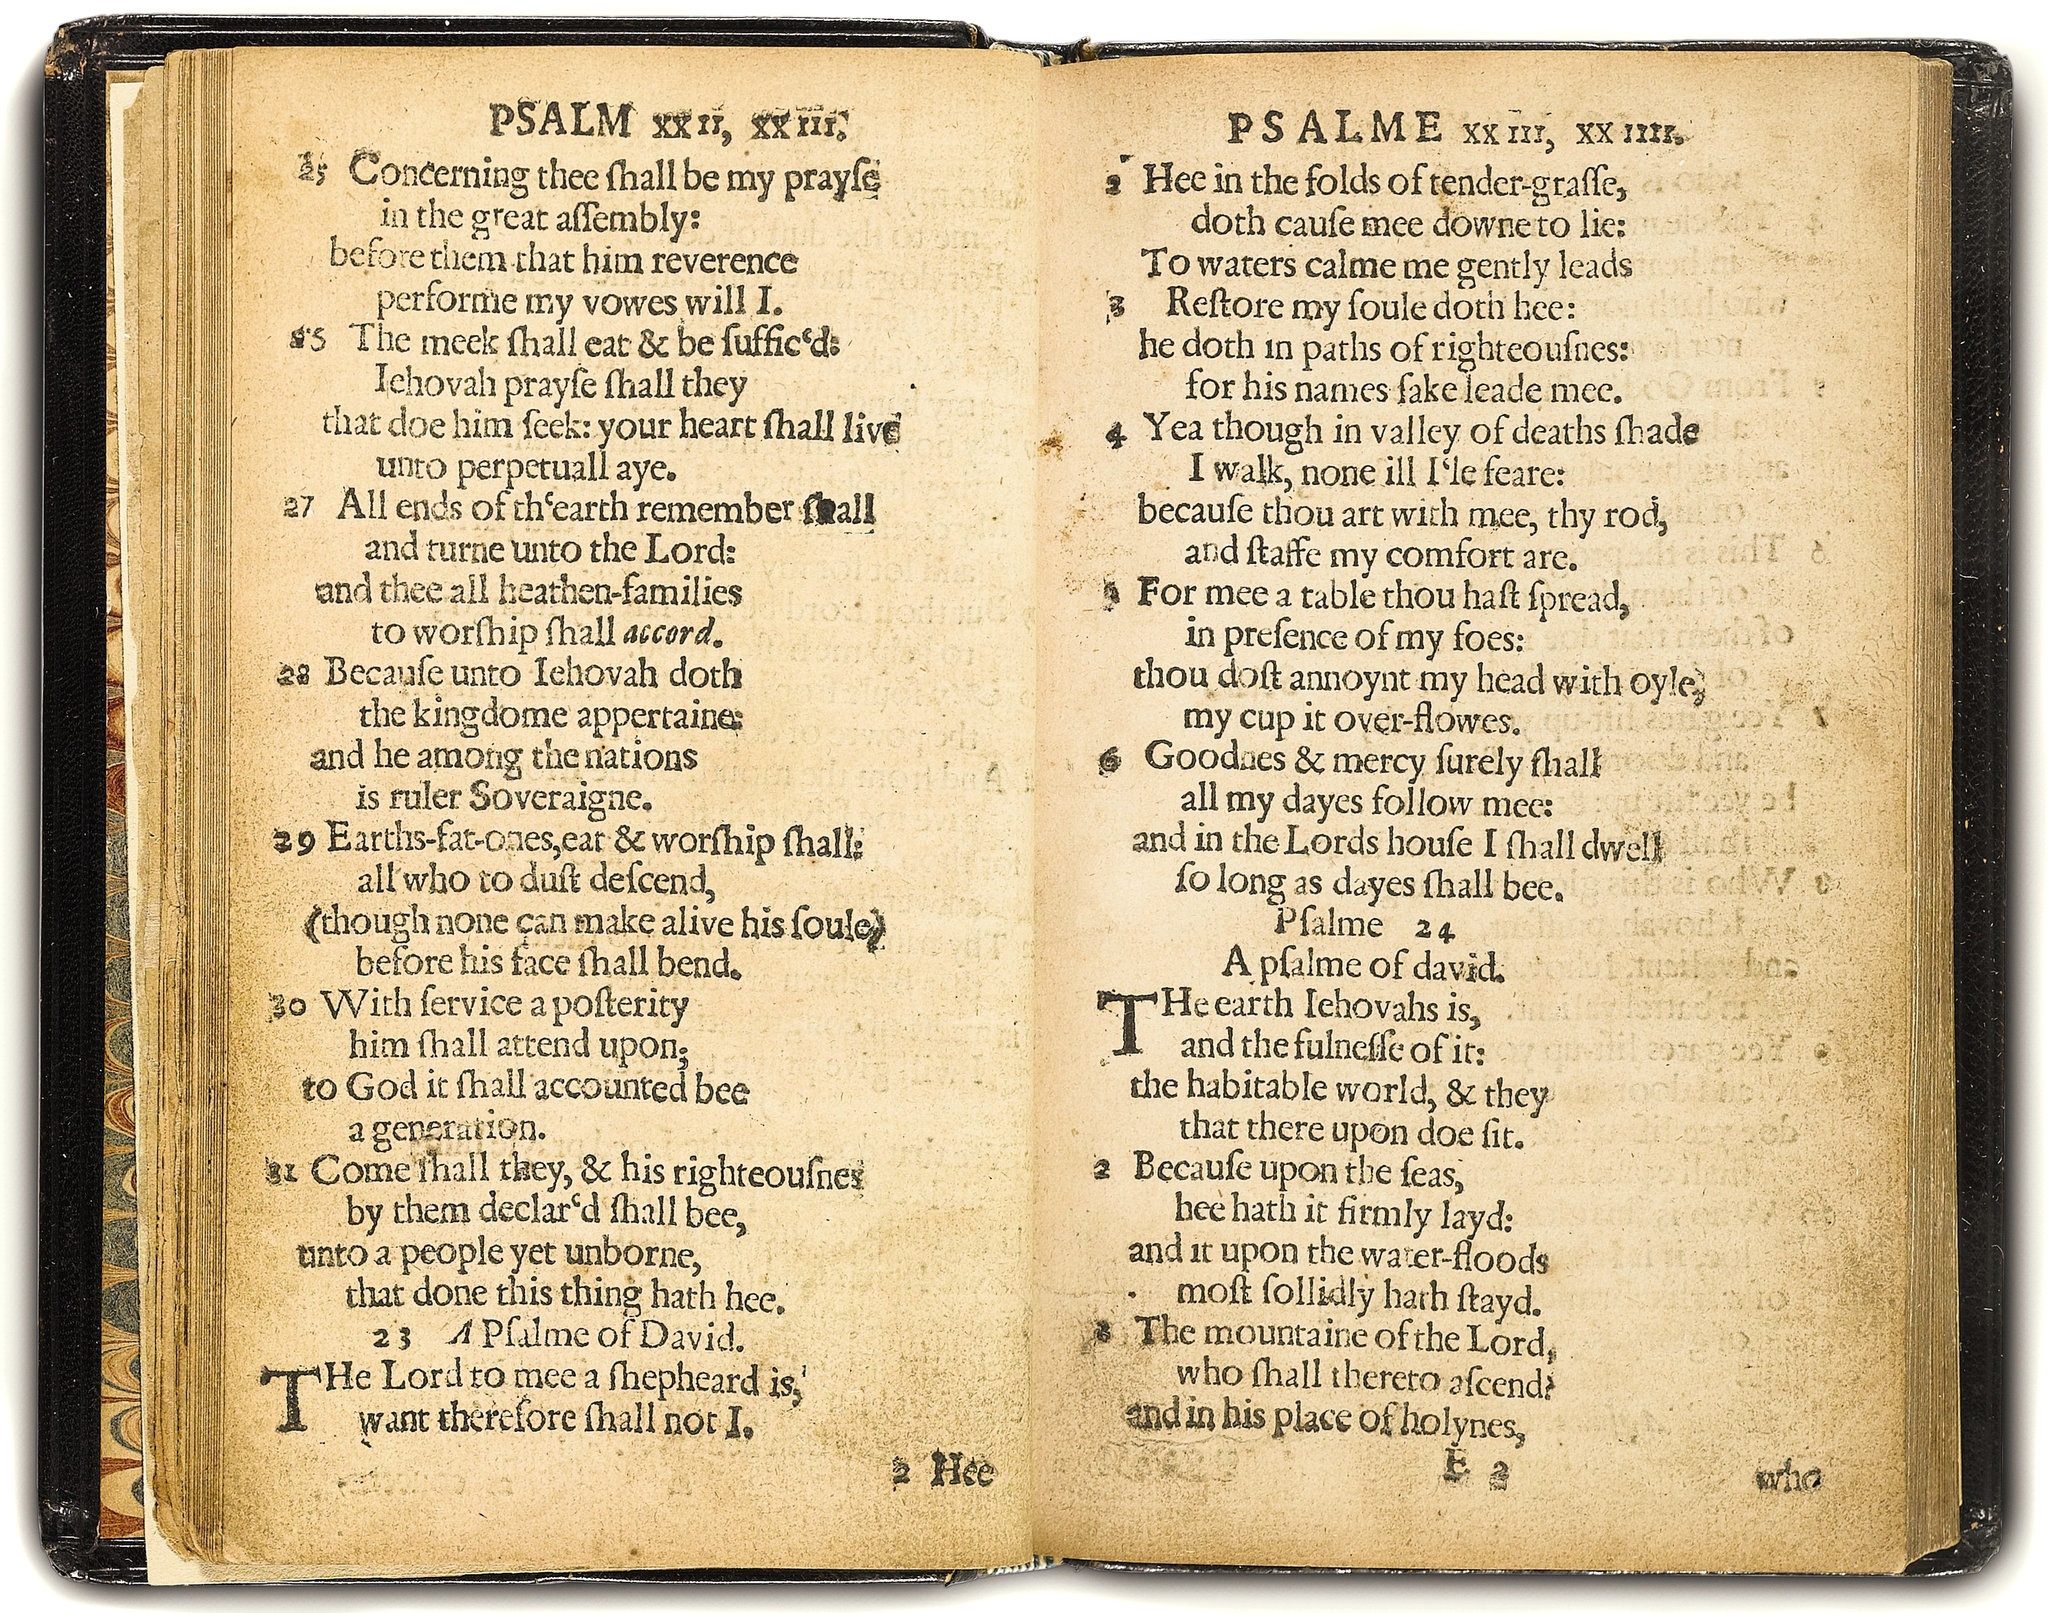 PSALM XXII, XXIII.
25 Concerning thee ſhall be my prayſe
in the great aſſembly:
before them that him reverence
performe my vowes will I.
25 The meek ſhall eat & be ſuffic‘d:
Iehovah prayſe ſhall they
that doe him ſeek: your heart ſhall live
unto perpetuall aye.
27 All ends of th‘earth remember ſhall
and turne unto the Lord:
and thee all heathen-families
to worſhip ſhall accord.
28 Becauſe unto Iehovah doth
the kingdome appertaine:
and he among the nations
is ruler Soveraigne.
29 Earths-fat-ones, eat & worſhip ſhall:
all who to duſt deſcend,
(though none can make alive his ſoule)
before his face ſhall bend.
30 With ſervice a poſterity
him ſhall attend upon;
to God it ſhall accounted bee
a generation.
31 Come ſhall they, & his righteouſnes
by them declar‘d ſhall bee,
unto a people yet unborne,
that done this thing hath hee.
23 A Pſalme of David.
THe Lord to mee a ſhepheard is,
want therefore ſhall not I.
2 Hee
PSALME XXIII, XXIIII.
2 Hee in the folds of tender-graſſe,
doth cauſe mee downe to lie:
To waters calme me gently leads
3 Reſtore my ſoule doth hee:
he doth in paths of righteouſnes:
for his names ſake leade mee.
4 Yea though in valley of deaths ſhade
I walk, none ill I‘le feare:
becauſe thou art with mee, thy rod,
and ſtaffe my comfort are.
5 For mee a table thou haſt ſpread,
in preſence of my foes:
thou doſt annoynt my head with oyle,
my cup it over-flowes.
6 Goodnes & mercy ſurely ſhall
all my dayes follow mee:
and in the Lords houſe I ſhall dwell
ſo long as dayes ſhall bee.
Pſalme 24
A pſalme of david.
THe earth Iehovahs is,
and the fulneſſe of it:
the habitable world, & they
that there upon doe ſit.
2 Becauſe upon the ſeas,
hee hath it firmly layd:
and it upon the water-floods
moſt ſollidly hath ſtayd.
3 The mountaine of the Lord,
who ſhall thereto aſcend?
and in his place of holynes,
E 2 who